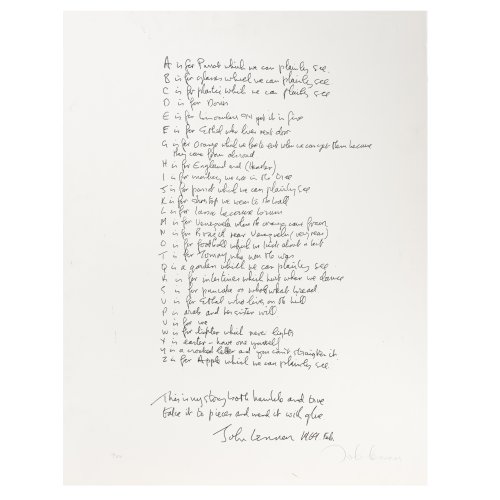 A is for Parrot which we can plainly see.
B is for glasses which we can plainly see
C is for plastic which we can plainly see
D is for Doris
E is for binoculars get it in five
F is for Ethel who lives next door
G is for Orange which we love to eat when we can get them because
they come from abroad
H is for England and (Heather)
I is for monkey we see in the tree
J is for parrot which we can plainly see
K is for shoetop we wear to the ball
L is for Lassie because brown
M is for Venezuela where the oranges come from
N is for Brazil near Venezuela (very near)
O is for football which we kick about a bit
T is for Tommy who won the war
Q is a garden which we can plainly see
R is for intestines which hurt when we dance
S is for pancake or whole wheat bread
U is for Ethel who lives on the hill
P is arab and her sister will
V is for me
W is for lighter which never lights
X is easter - have one yourself
Y is a crooked letter and you can't straighten it
Z is for Apple which we can plainly see.
This is my story both humble and true
take it to pieces and mend it with glue
John Lennon 1969 Feb.
John Lennon